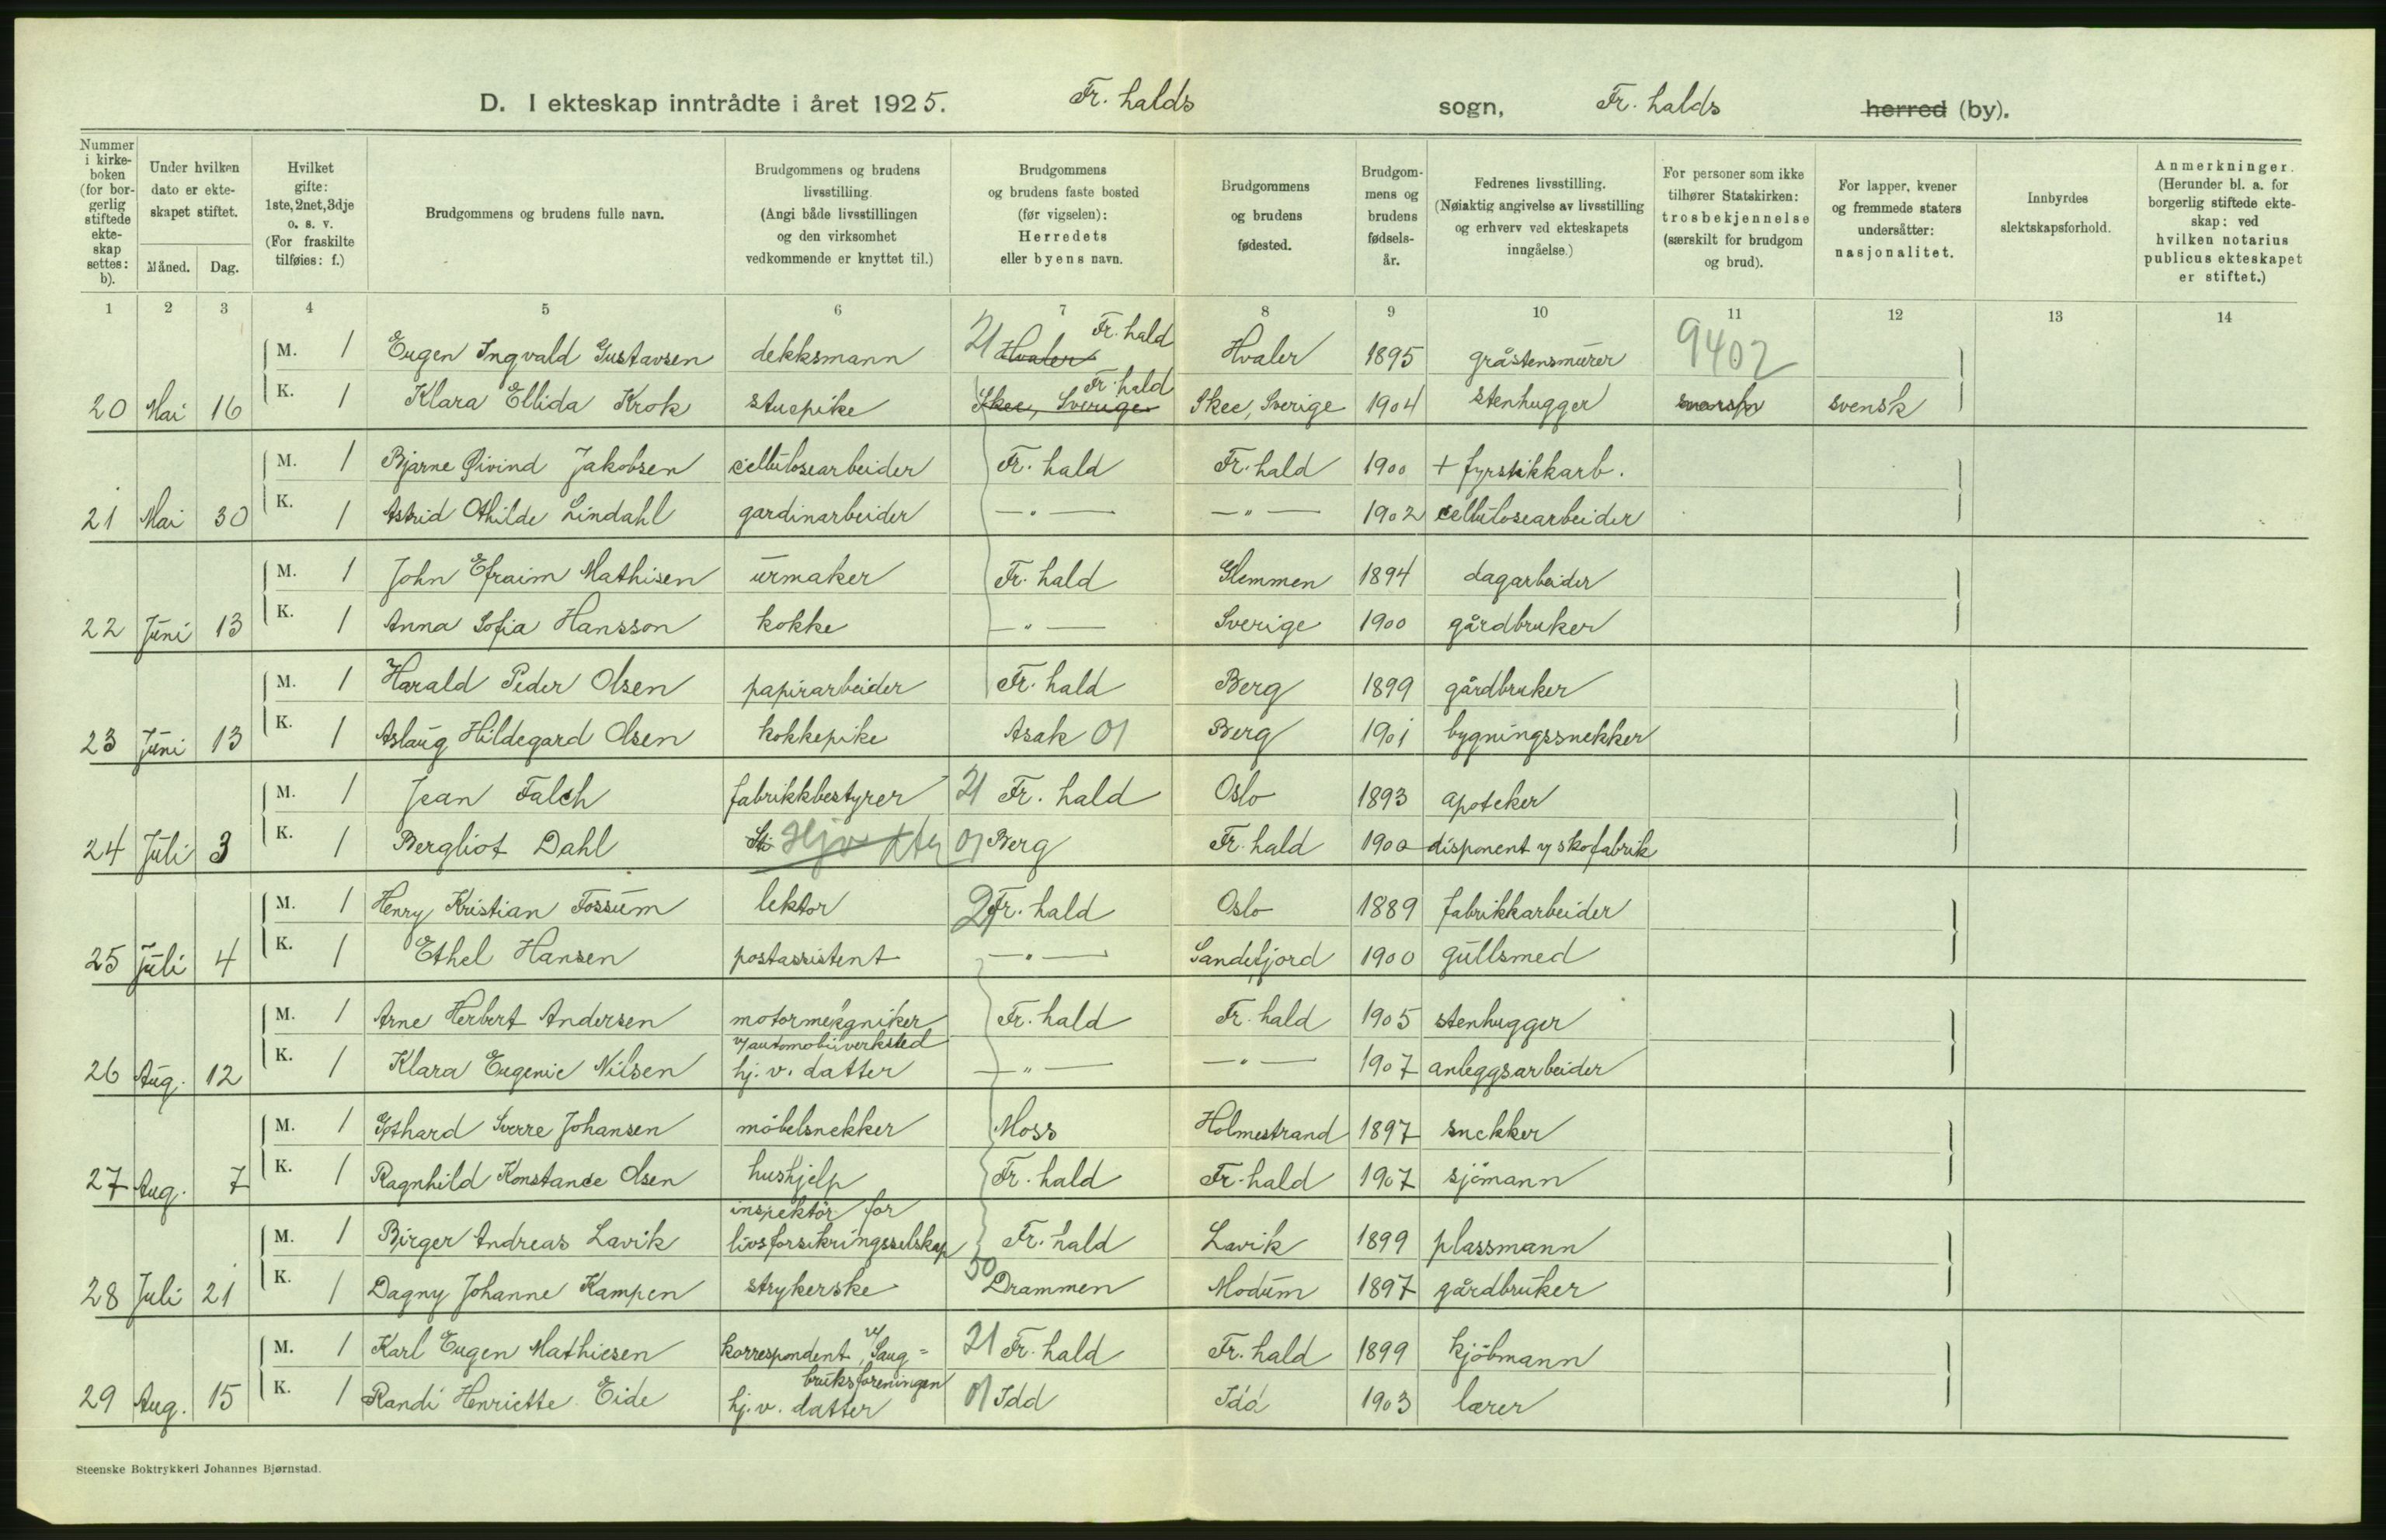 D. I ekteskap inntrådte i året 1925. Fr.halds sogn, Fr.halds herred (by).
Nummer i kirkeboken (for borgerlig stiftede ekteskap settes: b).
Under hvilken dato er ekteskapet stiftet.
Måned. Dag.
Hvilket gifte: 1ste, 2net, 3dje o. s. v. (For fraskilte tilføies: f.)
Brudgommens og brudens fulle navn.
Brudgommens og brudens livsstilling. (Angi både livsstillingen og den virksomhet vedkommende er knyttet til.)
Brudgommens og brudens faste bosted (før vigselen): Herredets eller byens navn.
Brudgommens og brudens fødested.
Brudgommens og brudens fødselsår.
Fedrenes livsstilling. (Nøiaktig angivelse av livsstilling og erhverv ved ekteskapets inngåelse.)
For personer som ikke tilhører Statskirken: trosbekjennelse (særskilt for brudgom og brud).
For lapper, kvener og fremmede staters undersåtter: nasjonalitet.
Innbyrdes slektskapsforhold.
Anmerkninger. (Herunder bl. a. for borgerlig stiftede ekteskap: ved hvilken notarius publicus ekteskapet er stiftet.)
1 2 3 4 5 6 7 8 9 10 11 12 13 14
M. 1 Eugen Ingvald Gustavsen dekksmann 21 Hvaler Fr.hald Hvaler 1895 gråstensmurer 9402
20 Mai 16 K. 1 Klara Ellida Krok stuepike Skee, Sverige Fr.hald Skee, Sverige 1904 stenhugger svensk
M. 1 Bjarne Øivind Jakobsen cellulosearbeider Fr.hald Fr.hald 1900 + fyrstikkarb.
21 Mai 30 K. 1 Astrid Othilde Lindahl gardinarbeider —"— —"— 1902 cellulosearbeider
M. 1 John Efraim Mathisen urmaker Fr.hald Glemmen 1894 dagarbeider
22 Juni 13 K. 1 Anna Sofia Hansson kokke —"— Sverige 1900 gårdbruker
M. 1 Harald Peder Olsen papirarbeider Fr.hald Berg 1899 gårdbruker
23 Juni 13 K. 1 Aslaug Hildegard Olsen kokkepike Asak 01 Berg 1901 bygningssnekker
M. 1 Jean Falch fabrikkbestyrer 21 Fr.hald Oslo 1893 apoteker
24 Juli 3 K. 1 Bergliot Dahl 01 Berg Fr.hald 1900 disponent v/ skofabrik
M. 1 Henry Kristian Fossum lektor 21 Fr.hald Oslo 1889 fabrikkarbeider
25 Juli 4 K. 1 Ethel Hansen postassistent —"— Sandefjord 1900 gullsmed
M. 1 Arne Herbert Andersen motormekaniker v/ automobilverksted Fr.hald Fr.hald 1905 stenhugger
26 Aug. 12 K. 1 Klara Eugenie Nilsen hj.v. datter —"— —"— 1907 anleggsarbeider
M. 1 Gothard Sverre Johansen møbelsnekker Moss Holmestrand 1897 snekker
27 Aug. 7 K. 1 Ragnhild Konstance Olsen hushjelp Fr.hald Fr.hald 1907 sjømann
M. 1 Birger Andreas Lavik inspektør for livsforsikringsselskap Fr.hald Lavik 1899 plassmann
28 Juli 21 K. 1 Dagny Johanne Kampen strykerske 50 Drammen Modum 1897 gårdbruker
M. 1 Karl Eugen Mathiesen korrespondent v/ Saugbruksforeningen 21 Fr.hald Fr.hald 1899 kjøbmann
29 Aug. 15 K. 1 Randi Henriette Eide hj.v. datter 01 Idd Idd 1903 lærer
Steenske Boktrykkeri Johannes Bjørnstad.